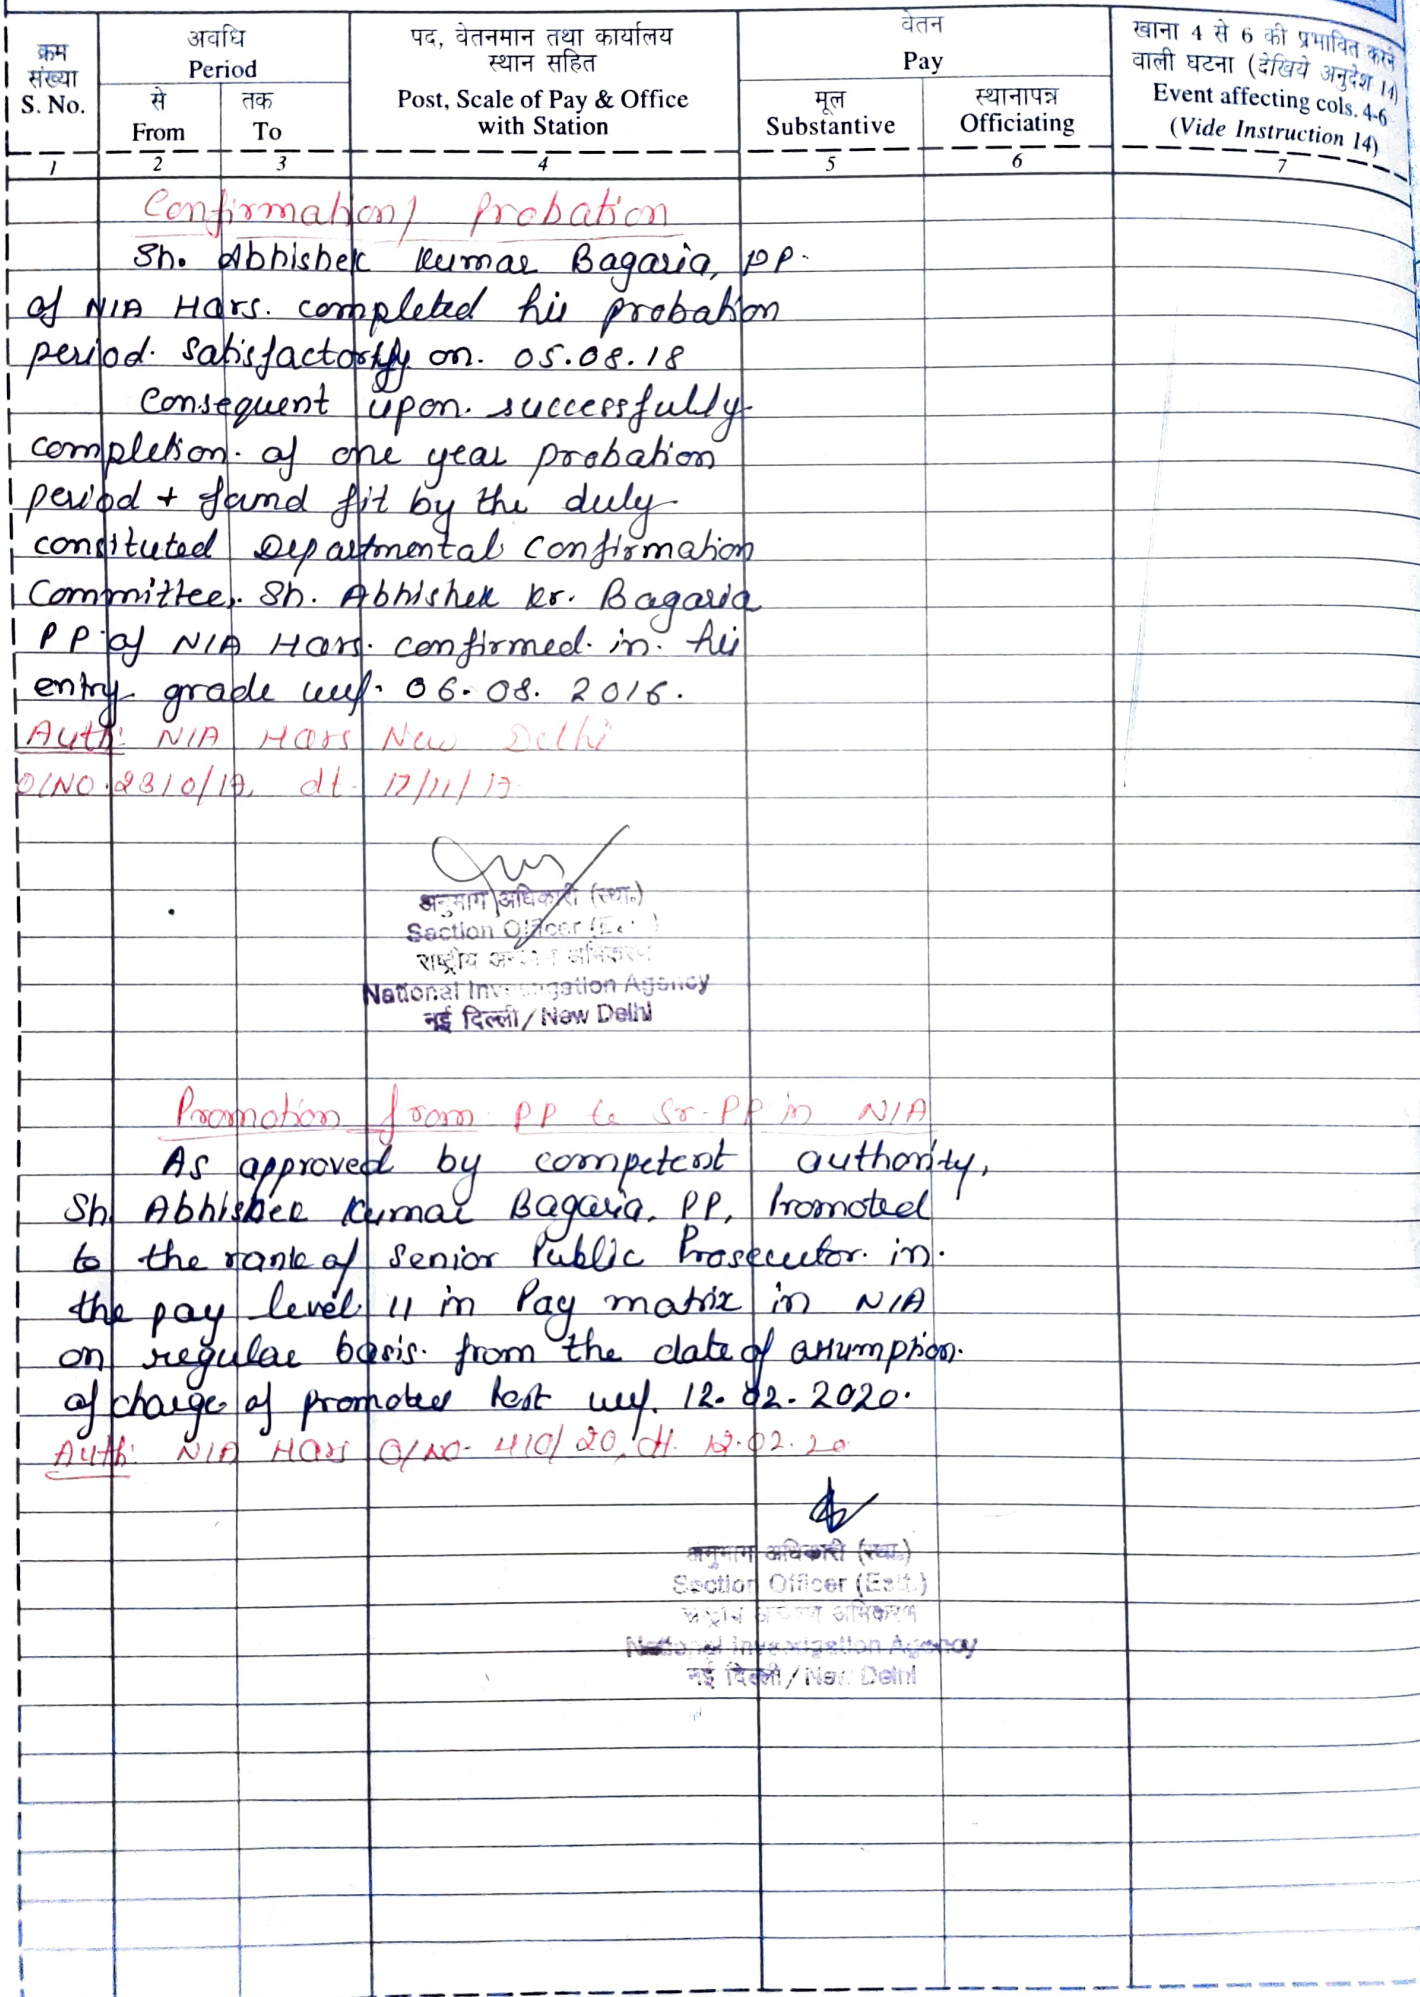 क्रम संख्या S. No.
अवधि Period
से From
तक To
पद, वेतनमान तथा कार्यालय स्थान सहित
Post, Scale of Pay & Office with Station
वेतन Pay
मूल Substantive
स्थानापन्न Officiating
खाना 4 से 6 की प्रभावित करने
वाली घटना (देखिये अनुदेश 14)
Event affecting cols. 4-6
(Vide Instruction 14)
1 2 3 4 5 6 7
Confirmation/ Probation
Sh. Abhishek Kumar Bagaria, PP.
of NIA Hqrs. completed his probation
period. satisfactorily on. 05.08.18
Consequent upon. successfully
completion. of one year probation
period + found fit by the duly
constituted Departmental Confirmation
Committee, Sh. Abhishek Kr. Bagaria
PP of NIA Hqrs. confirmed. in. his
entry grade wef. 06.08.2016.
Auth: NIA Hqrs New Delhi
O/NO. 2310/17, dt. 17/11/17
अनुभाग अधिकारी (स्था०)
Section Officer
राष्ट्रीय अभिकरण
National Investigation Agency
नई दिल्ली/New Delhi
Promotion from PP to Sr-PP in NIA
As approved by competent authority,
Sh Abhishek Kumar Bagaria, PP, Promoted
to the rank of Senior Public Prosecutor. in.
the pay level 11 in Pay matrix in NIA
on regular basis. from the date of assumption.
of charge of promoted post wef. 12.02.2020.
Auth: NIA Hqrs O/NO- 410/20, dt. 12.02.20
अनुभाग अधिकारी (स्था०)
Section Officer (Estt.)
अभिकरण
National Investigation Agency
नई दिल्ली/New Delhi